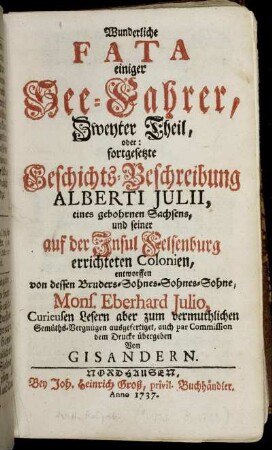 Wunderliche
FATA
einiger
See-Fahrer,
Zweyter Theil,
oder:
fortgesetzte
Geschichts-Beschreibung
ALBERTI JULII,
eines gebohrnen Sachsens,
und seiner
auf der Insul Felsenburg
errichteten Colonien,
entworffen
von dessen Bruders-Sohnes-Sohnes-Sohne,
Mons. Eberhard Julio,
Curieusen Lesern aber zum vermuthlichen
Gemüths-Vergnügen ausgefertiget, auch par Commission
dem Drucke übergeben
Von
GISANDERN.
NORDHAUSEN,
Bey Joh. Heinrich Groß, privil. Buchhändler.
Anno 1737.